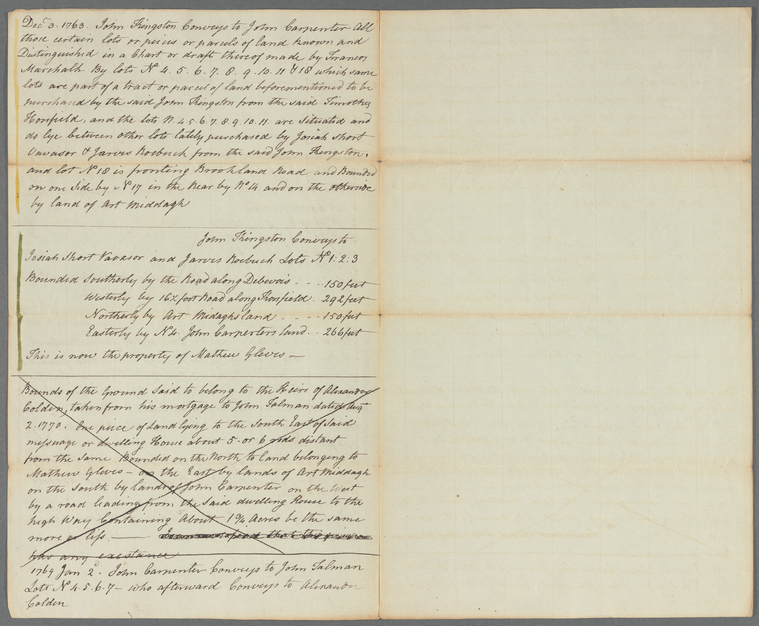 Decr 3. 1763. John Kingston Conveys to John Carpenter All
those certain lots or peices or parcels of land known and
Distinguished in a Chart or draft thereof made by Francis
Marshalk By lots No 4. 5. 6. 7. 8. 9. 10. 11 & 18 which same
lots are part of a tract or parcel of land beforementioned to be
purchased by the said John Kingston from the said Timothy
Horsfield, and the lots N. 4. 5. 6. 7. 8. 9. 10. 11. are situated and
do lye between other lots lately purchased by Josiah Short
Vavasor & Jarvis Roebuck from the said John Kingston,
and lot No 18 is fronting Brookland Road and Bounded
on one Side by No 17 in the Rear by No 14 and on the otherside
by land of Art Middagh
John Kingston Conveys to
Josiah Short Vavasor and Jarvis Roebuck Lots No 1. 2. 3
Bounded Southerly by the Road along Debevois - - - 150 feet
Westerly by 16½ foot Road along Horsfield . 292 feet
Northerly by Art Midaghs land - - - - 150 feet
Easterly by N4. John Carpenters land . . 266 feet
This is now the property of Mathew Gleves —
Bounds of the Ground Said to belong to the Heirs of Alexander
Colden, taken from his mortgage to John Talman dated Augt
2. 1770. One piece of Land lying to the South East of said
messuage or dwelling House about 5. or 6 rods distant
from the same Bounded on the North to Land belonging to
Mathew Gleves — on the East by lands of Art Middagh
on the South by lands of John Carpenter on the West
by a road leading from the Said dwelling House to the
high Way Containing About 1¾ Acres be the same
more or less. —
has any existance
1769 Jan 2d. John Carpenter Conveys to John Talman
Lots No 4. 5. 6. 7 — who afterward Conveys to Alexander
Colden